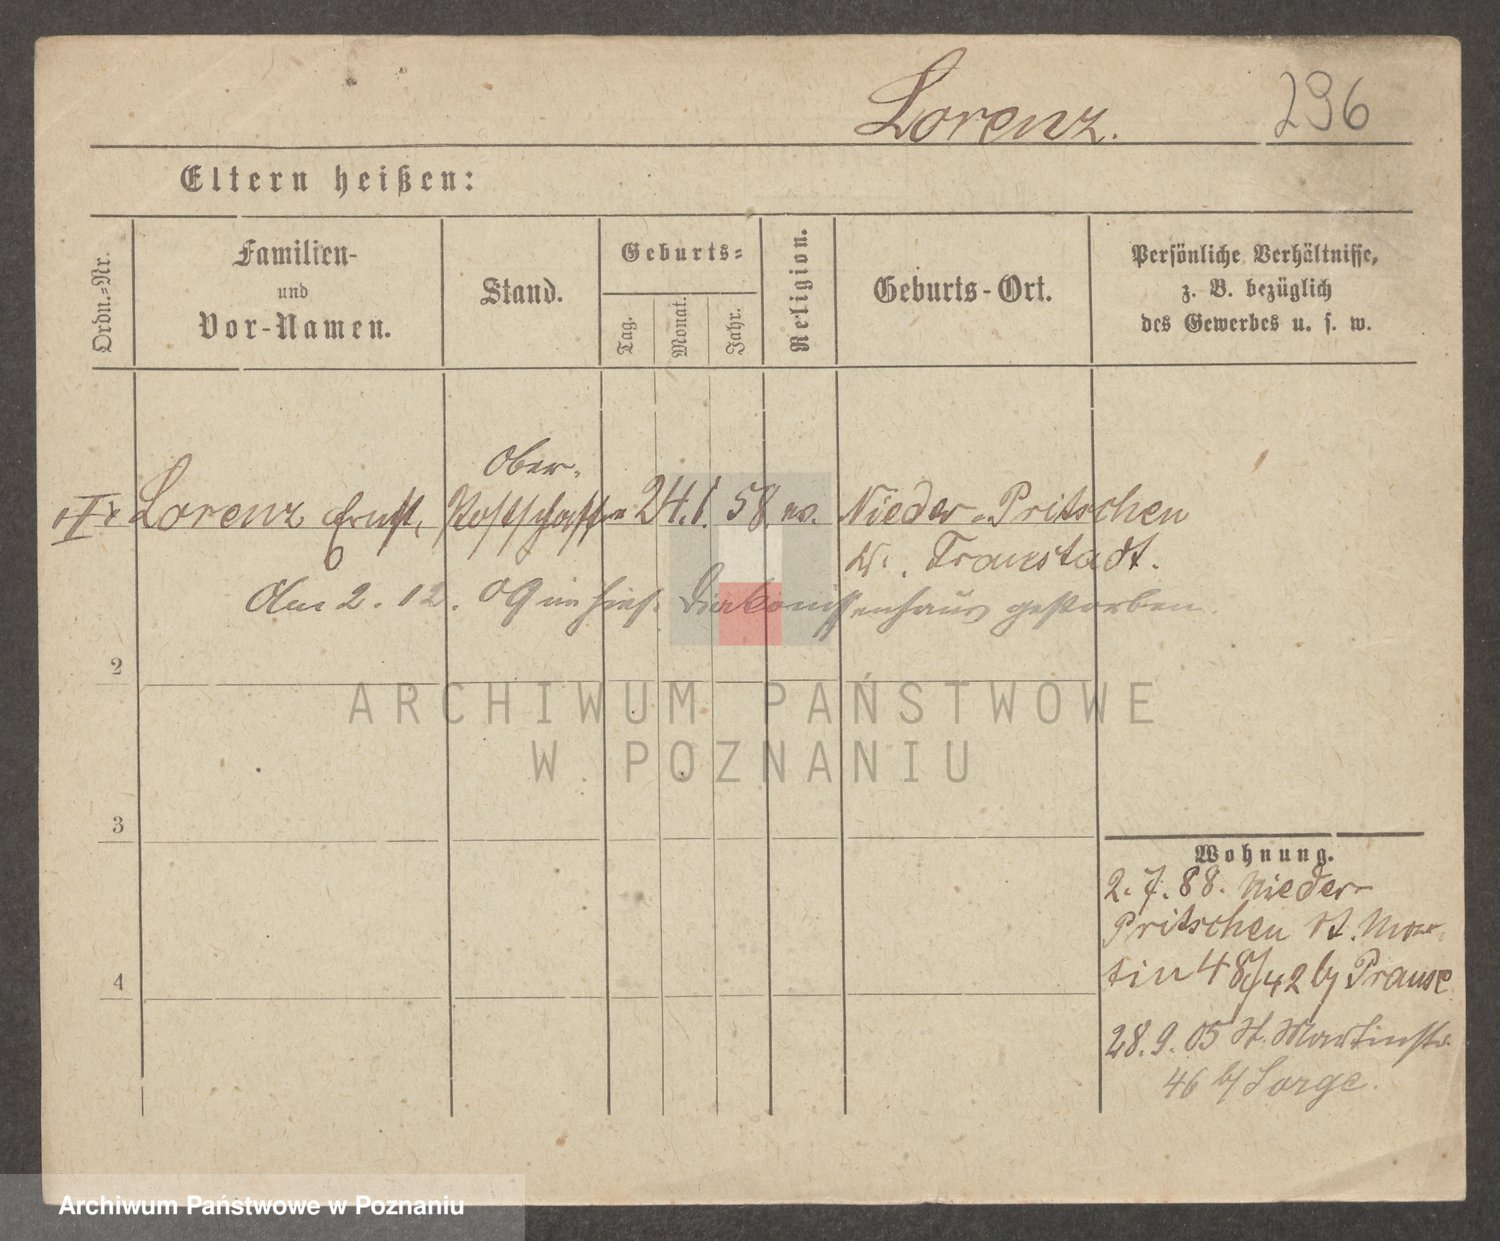 Lorenz.
296
Eltern heißen:
Ordn.-Nr.
Familien-
und
Vor-Namen.
Stand.
Geburts-
Tag.
Monat.
Jahr.
Religion.
Geburts-Ort.
Persönliche Verhältnisse,
z. B. bezüglich
des Gewerbes u. s. w.
Ober-
Lorenz Ernst, Postschaffner 24. 1. 58 ev. Nieder-Pritschen
Kr. Fraustadt.
den 2. 12. 09 im hies. Diakonissenhaus gestorben.
2
ARCHIWUM PAŃSTWOWE
W POZNANIU
3
Wohnung.
2. 7. 88. Nieder-
Pritschen St. Mar-
tin 48/42 b/ Prause
4
28. 9. 05 St. Martinstr.
46 b/ Sorge.
Archiwum Państwowe w Poznaniu